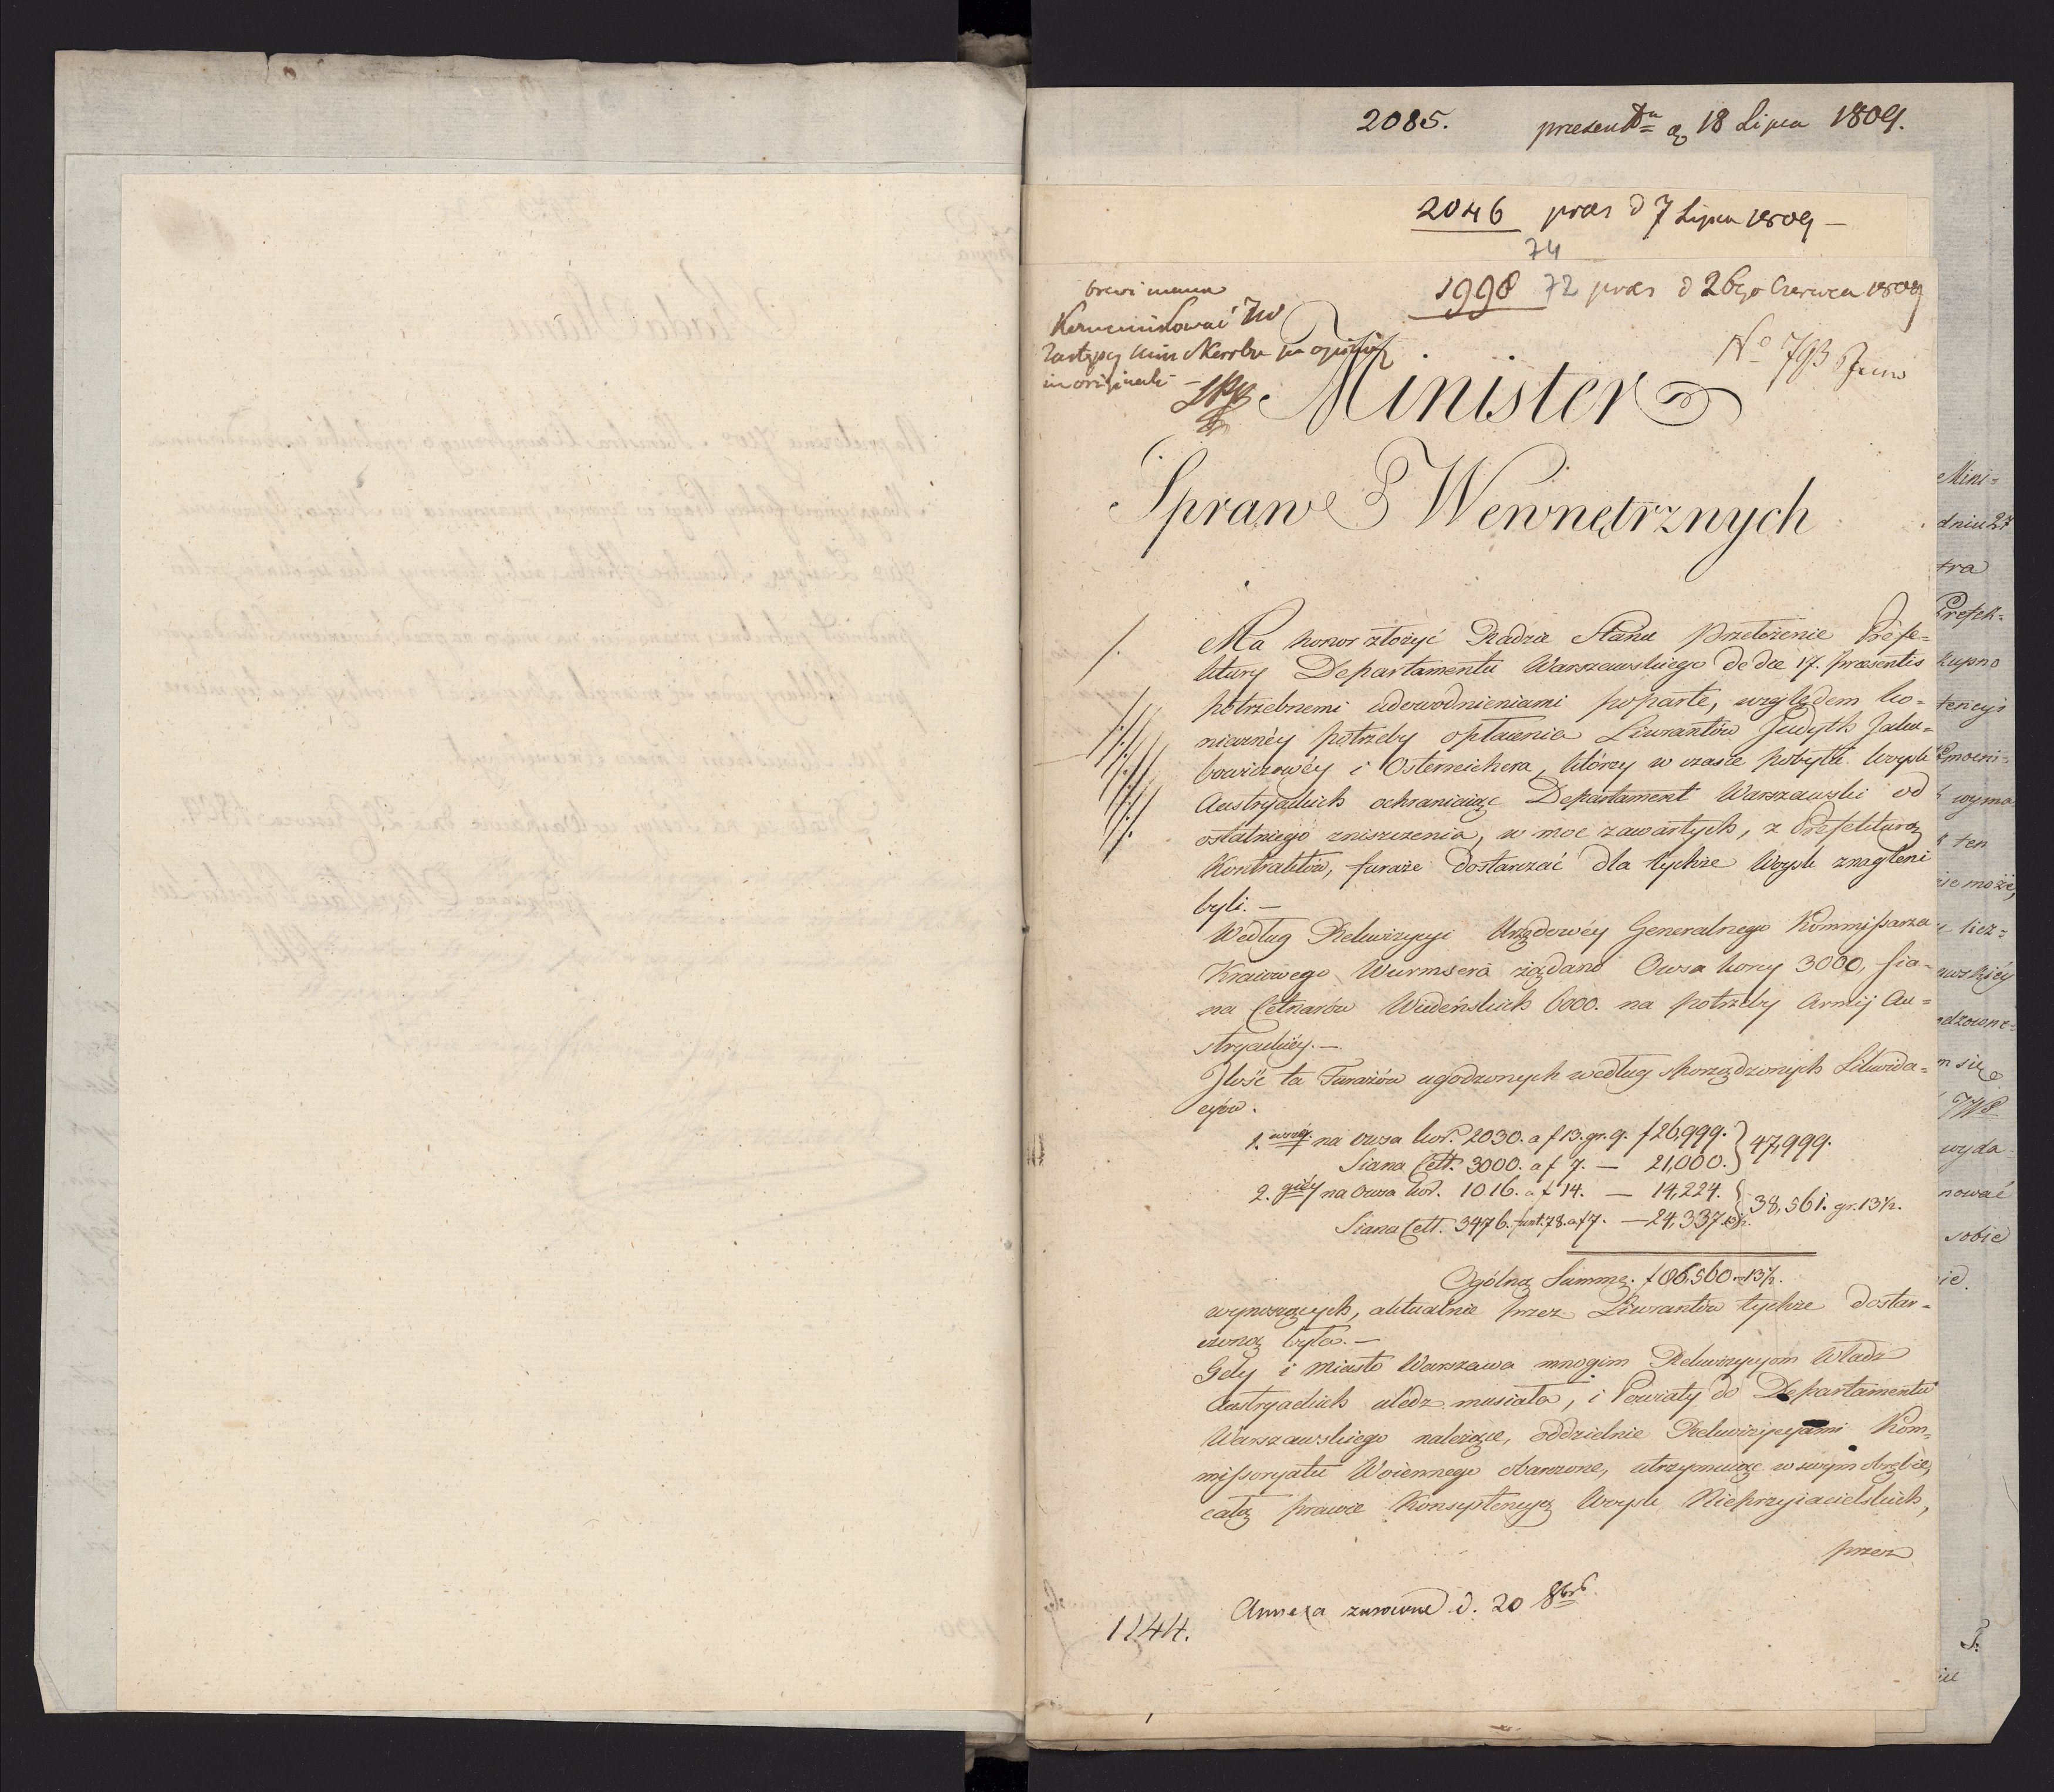 2085. d 18 Lipca 1809.
2046 praes d 7 Lipca 1809 —
74
1998 72 praes d 26go Czerwca 1809
brevi manu
Kommunikować JW
Zastępcy Min Skarbu
in originali —
No 793
Minister
Spraw Wewnętrznych
Ma honor złożyć Radzie Stanu przełożenie Prefe=
ktury Departamentu Warszawskiego de die 17. praesentis
potrzebnemi udowodnieniami poparte, względem ko=
nieczney potrzeby opłacenia Liwrantów Judyth Jaku=
bowiczowéy i Osterreichera, którzy w czasie pobytu Woysk
Austryackich ochraniaiąc Departament Warszawski od
ostatniego zniszczenia, w moc zawartych, z Prefekturą
Kontraktów, furaże dostarczać dla tychże Woysk znagleni
byli. —
Według Rekwizycyi Urzędowéy Generalnego Kommissarza
Kraiowego Wurmsera żądano Owsa korcy 3000, Sia=
na Cetnarów Wiedeńskich 6000. na potrzeby Armij Au=
stryackiéy. —
Jlość ta Furażów ugodzonych według sporządzonych Likwida=
cyów.
1. na owsa kor. 2030. a f 13. gr. 9. f 26,999. } 47,999.
Siana Cett. 3000. a f 7. — 21,000.
2. na Owsa kor. 1016. a f 14. — 14,224. } 38,561. gr. 13½.
Siana Cett. 3476. funt. 78. a f 7. — 24,337. 13½.
Ogólną Summę. f 86,560. — 13½.
wynoszących, aktualnie przez Liwrantów tychże dostar=
czoną była. —
Gdy i Miasto Warszawa mnogim Rekwizycyom Władz
Austryackich uledz musiała, i Powiaty do Departamentu
Warszawskiego należące, oddzielnie Rekwizycyami Kom=
missoryatu Woiennego obarczone, utrzymuiąc w swym obrębie,
całą prawie Konsystencyą Woysk Nieprzyiacielskich,
przez
Annexa zwrócone d. 20 8bris
1144.
Mini=
dniu 27
tra
Prefek=
kupno
tencyi
wyma
ten
może,
licz=
się
JWP
wyda
nować
sobie